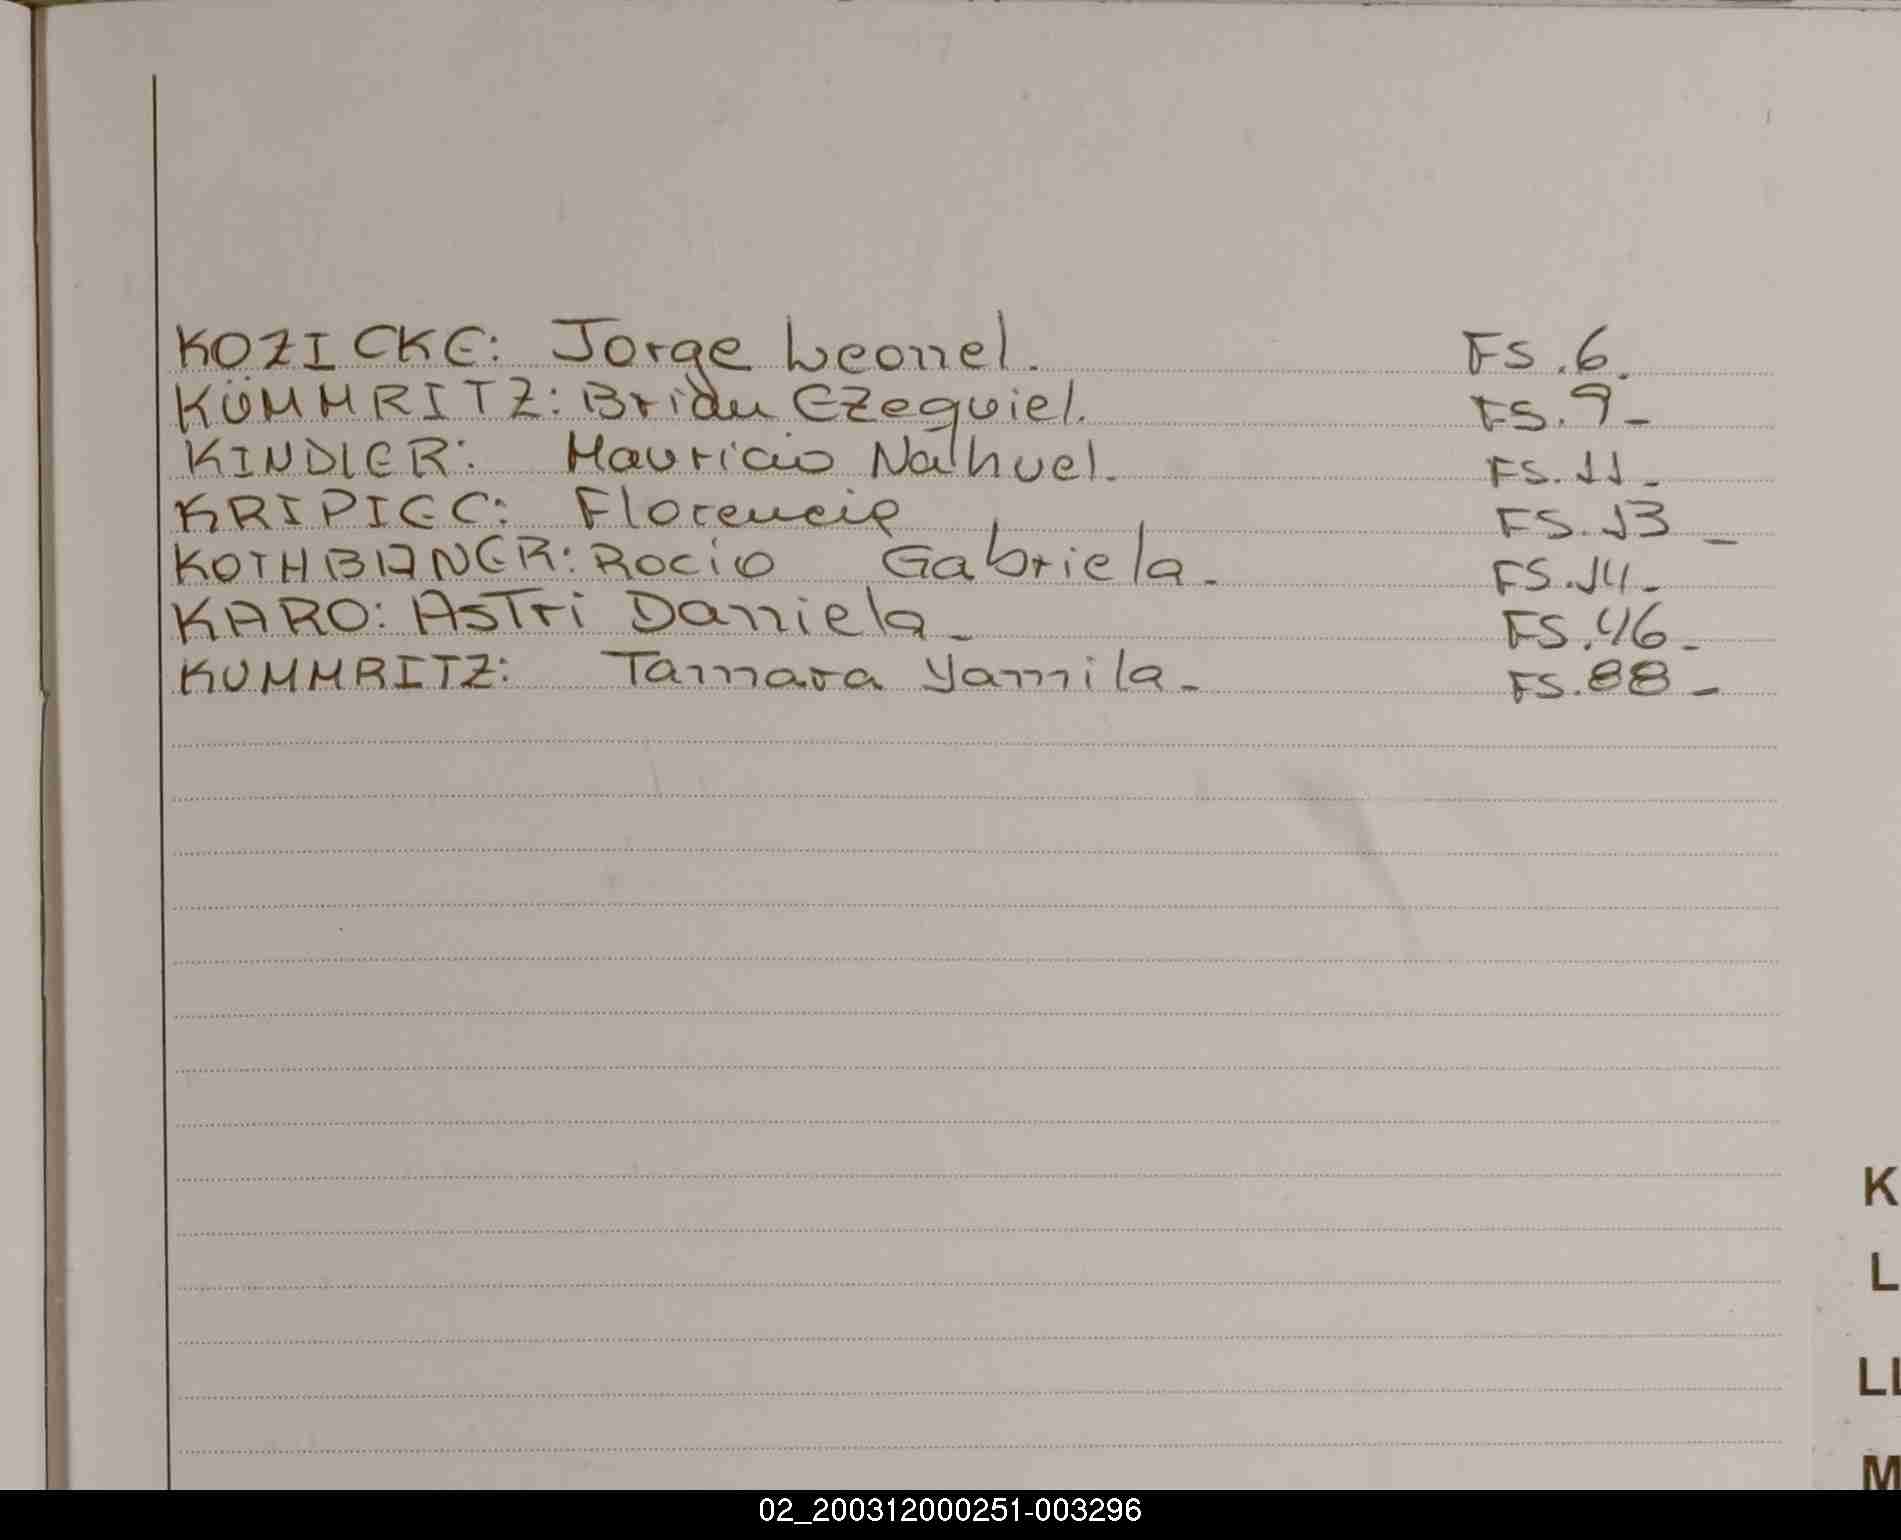 KOZICKE: Jorge Leonel. FS.6.
KÜMMRITZ: Brian Ezequiel. FS.9-
KINDLER: Mauricio Nahuel. FS.11-
KRIPIEC: Florencia FS.13-
KOTHBIANER: Rocio Gabriela- FS.14-
KARO: AsTri Daniela- FS.46-
KUMMRITZ: Tamara Yamila- FS.88-
K
L
LL
M
02_200312000251-003296